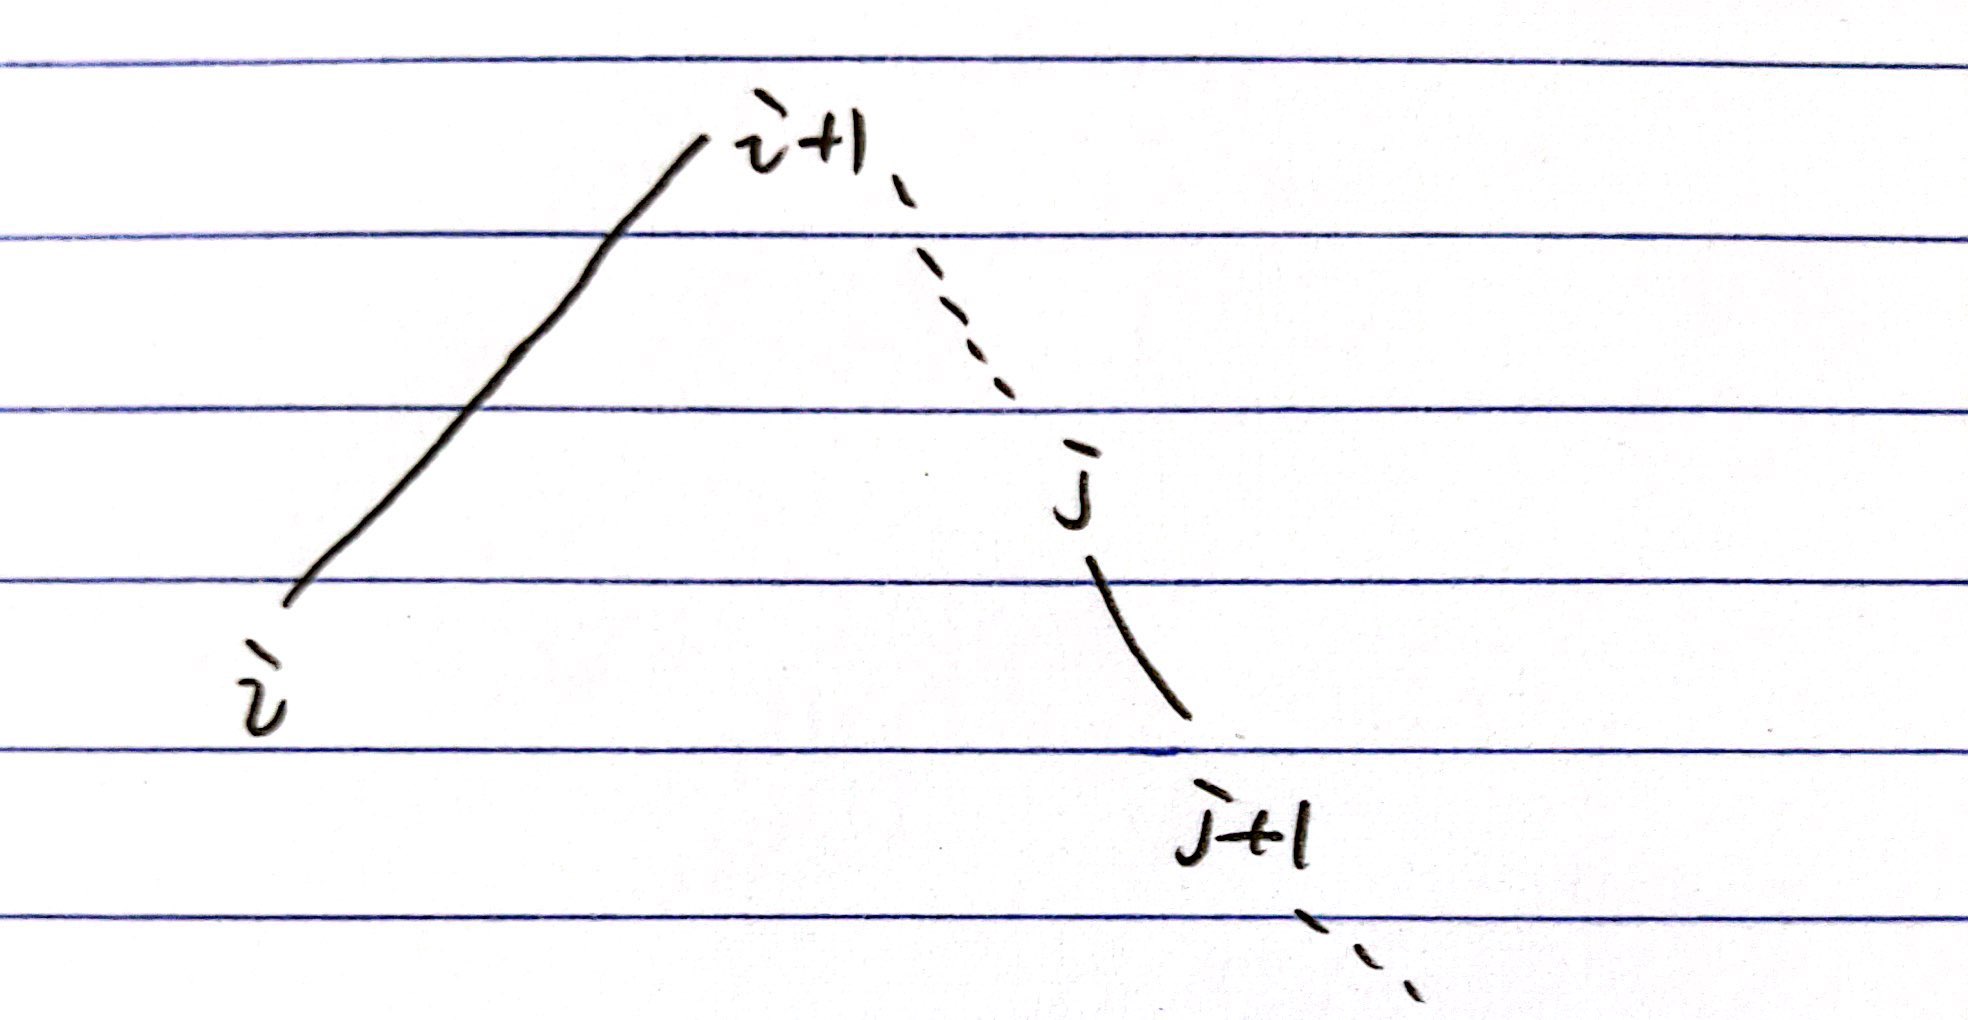 i+1
j
i
j+1